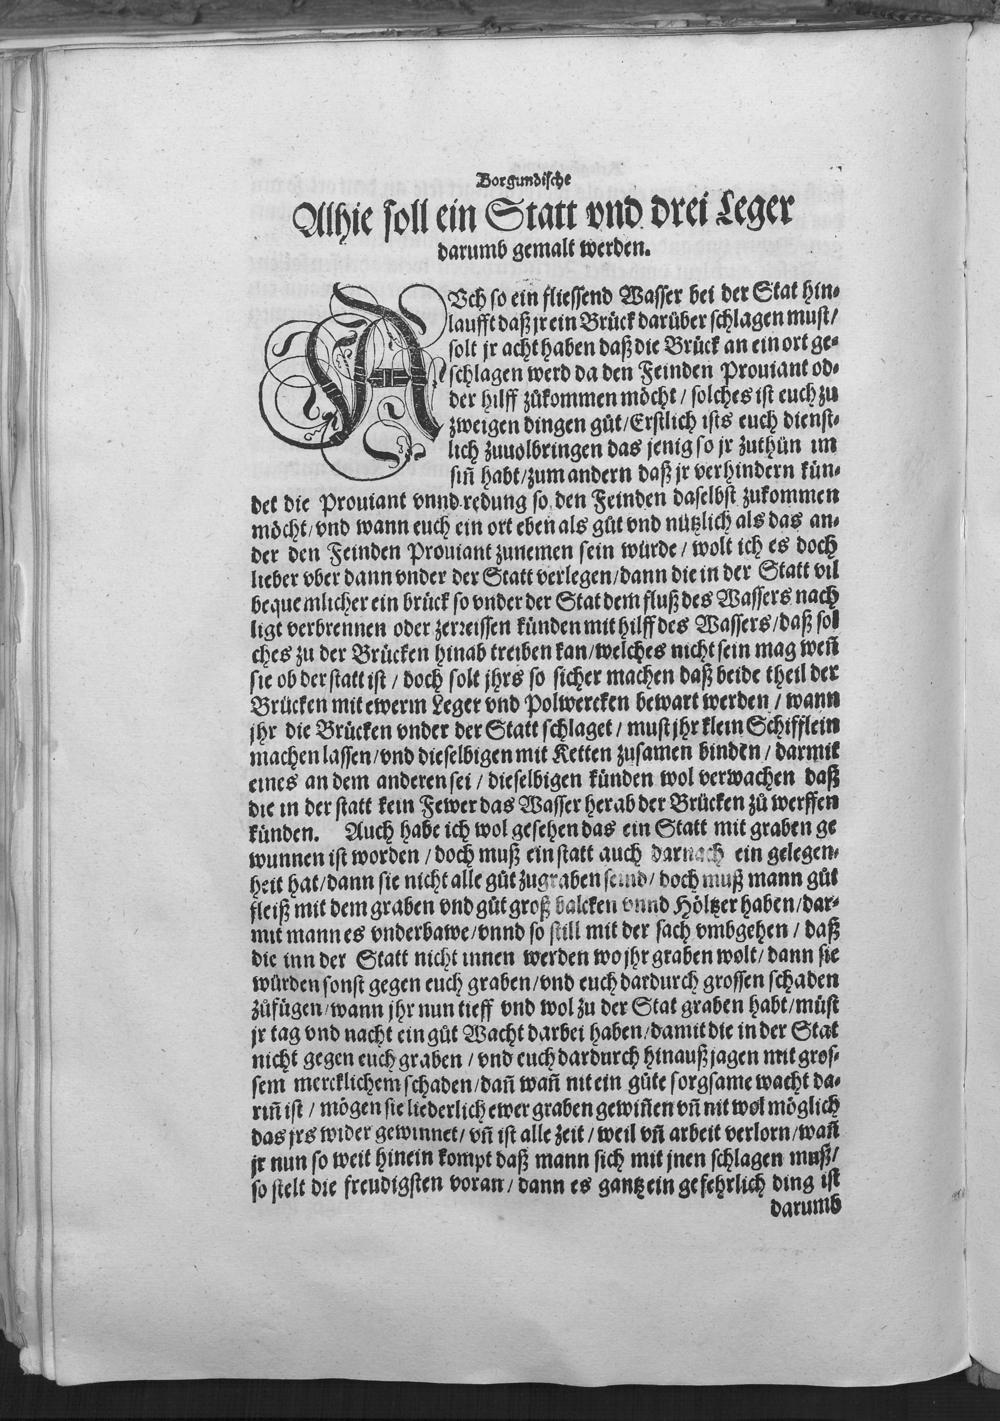 Borgundische
Alhie soll ein Statt vnd drei Leger
darumb gemalt werden.
AVch so ein fliessend Wasser bei der Stat hin⸗
laufft daß jr ein Brück darüber schlagen must/
solt jr acht haben daß die Brück an ein ort ge⸗
schlagen werd da den Feinden Prouiant od⸗
der hilff zůkommen möcht/ solches ist euch zu
zweigen dingen gůt/Erstlich ists euch dienst⸗
lich zuuolbringen das jenig so jr zuthůn im
siñ habt/zum andern daß jr verhindern kün⸗
det die Prouiant vnnd redung so den Feinden daselbst zukommen
möcht/vnd wann euch ein ort eben als gůt vnd nützlich als das an⸗
der den Feinden Prouiant zunemen sein würde/ wolt ich es doch
lieber vber dann vnder der Statt verlegen/dann die in der Statt vil
bequemlicher ein brück so vnder der Stat dem fluß des Wassers nach
ligt verbrennen oder zerreissen künden mit hilff des Wassers/daß sol
ches zu der Brücken hinab treiben kan/welches nicht sein mag weñ
sie ob der statt ist/ doch solt jhrs so sicher machen daß beide theil der
Brücken mit ewerm Leger vnd Polwercken bewart werden/ wann
jhr die Brücken vnder der Statt schlaget/ must jhr klein Schifflein
machen lassen/vnd dieselbigen mit Ketten zusamen binden/ darmit
eines an dem anderen sei/ dieselbigen künden wol verwachen daß
die in der statt kein Fewer das Wasser herab der Brücken zů werffen
künden. Auch habe ich wol gesehen das ein Statt mit graben ge
wunnen ist worden/ doch muß ein statt auch darnach ein gelegen⸗
heit hat/dann sie nicht alle gůt zugraben seind/ doch muß mann gůt
fleiß mit dem graben vnd gůt groß balcken vnnd Höltzer haben/dar⸗
mit mann es vnderbawe/vnnd so still mit der sach vmbgehen/ daß
die inn der Statt nicht innen werden wo jhr graben wolt/ dann sie
würden sonst gegen euch graben/vnd euch dardurch grossen schaden
zůfügen/wann jhr nun tieff vnd wol zu der Stat graben habt/müst
jr tag vnd nacht ein gůt Wacht darbei haben/damit die in der Stat
nicht gegen euch graben/ vnd euch dardurch hinauß jagen mit gros⸗
sem mercklichem schaden/dañ wañ nit ein gůte sorgsame wacht da⸗
riñ ist/ mögen sie liederlich ewer graben gewiñen vñ nit wol möglich
das jrs wider gewinnet/ vñ ist alle zeit/ weil vñ arbeit verlorn/wañ
jr nun so weit hinein kompt daß mann sich mit jnen schlagen muß/
so stelt die freudigsten voran/ dann es gantz ein gefehrlich ding ist
darumb